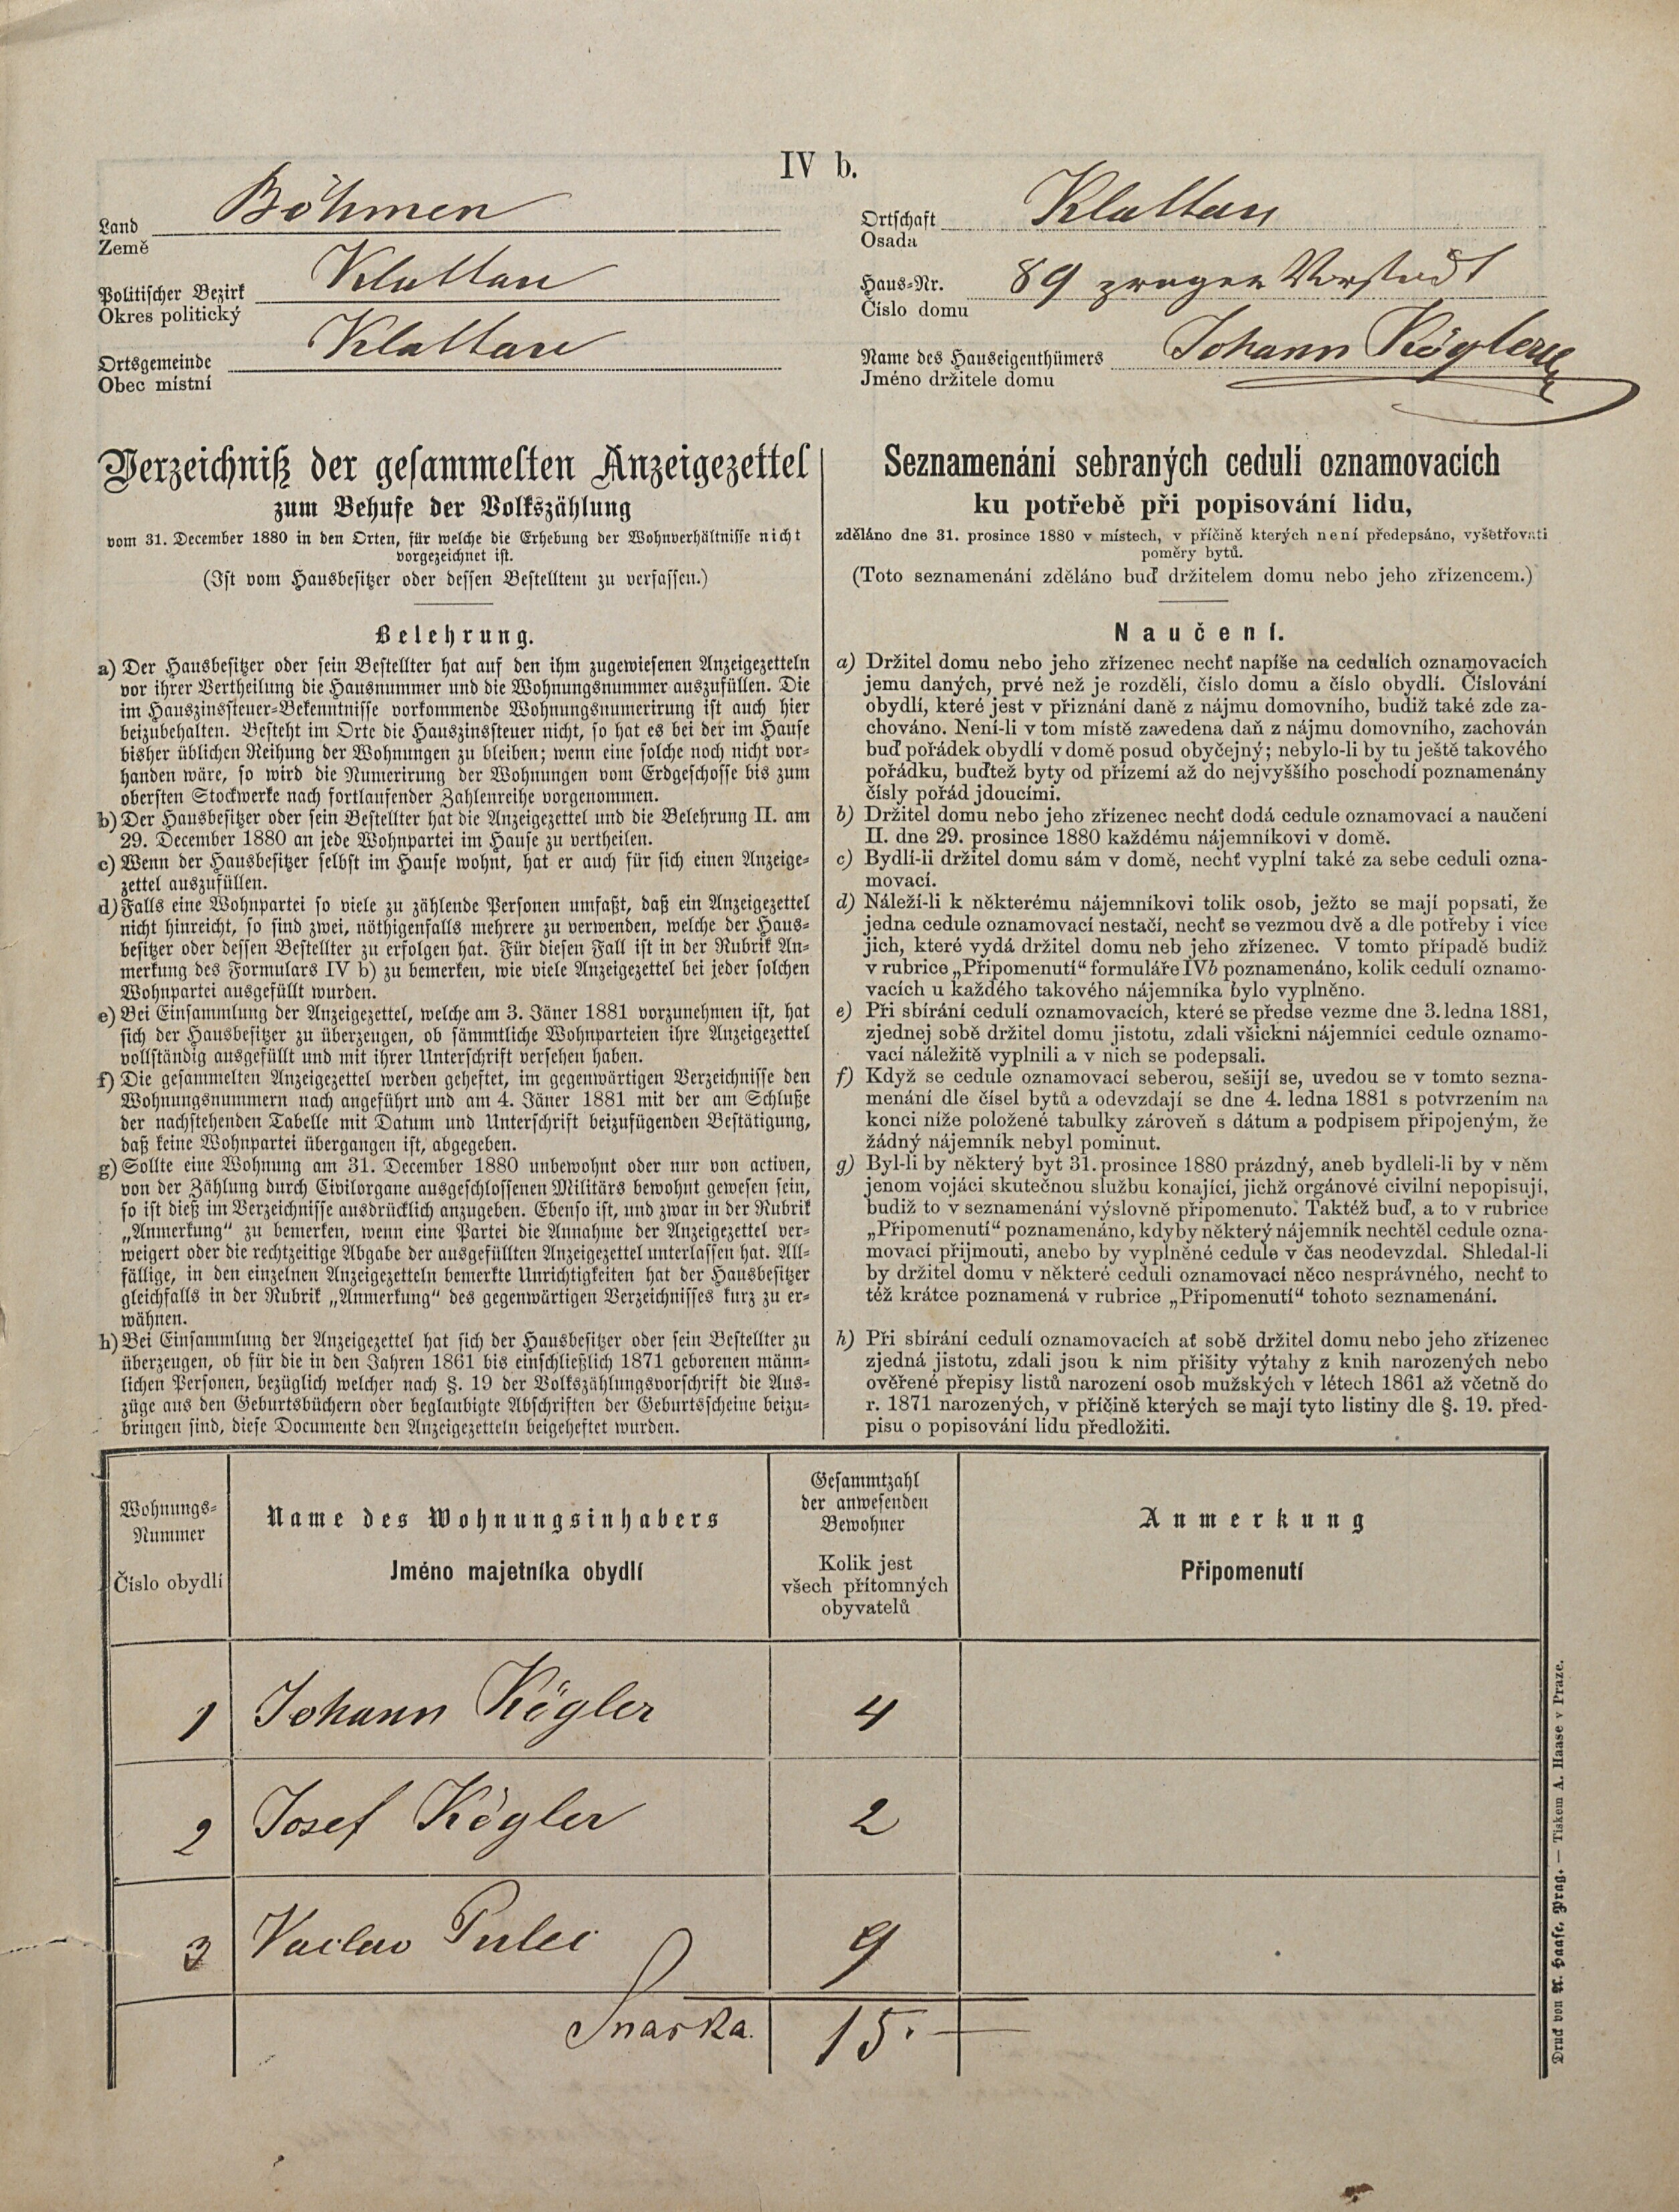 IV b.
Land Böhmen
Země
Politischer Bezirk Klattau
Okres politický
Ortsgemeinde Klattau
Obec místní
Ortschaft Klattau
Osada
Haus-Nr. 89 Vorstadt
Číslo domu
Name des Hauseigenthümers Johann Kögler
Jméno držitele domu
Verzeichniß der gesammelten Anzeigezettel
zum Behufe der Volkszählung
vom 31. December 1880 in den Orten, für welche die Erhebung der Wohnverhältnisse nicht
vorgezeichnet ist.
(Ist vom Hausbesitzer oder dessen Bestelltem zu verfassen.)
Belehrung.
a) Der Hausbesitzer oder sein Bestellter hat auf den ihm zugewiesenen Anzeigezetteln
vor ihrer Vertheilung die Hausnummer und die Wohnungsnummer auszufüllen. Die
im Hauszinssteuer-Bekenntnisse vorkommende Wohnungsnumerirung ist auch hier
beizubehalten. Besteht im Orte die Hauszinssteuer nicht, so hat es bei der im Hause
bisher üblichen Reihung der Wohnungen zu bleiben; wenn eine solche noch nicht vor-
handen wäre, so wird die Numerirung der Wohnungen vom Erdgeschosse bis zum
obersten Stockwerke nach fortlaufender Zahlenreihe vorgenommen.
b) Der Hausbesitzer oder sein Bestellter hat die Anzeigezettel und die Belehrung II. am
29. December 1880 an jede Wohnpartei im Hause zu vertheilen.
c) Wenn der Hausbesitzer selbst im Hause wohnt, hat er auch für sich einen Anzeige-
zettel auszufüllen.
d) Falls eine Wohnpartei so viele zu zählende Personen umfaßt, daß ein Anzeigezettel
nicht hinreicht, so sind zwei, nöthigenfalls mehrere zu verwenden, welche der Haus-
besitzer oder dessen Bestellter zu erfolgen hat. Für diesen Fall ist in der Rubrik An-
merkung des Formulars IV b) zu bemerken, wie viele Anzeigezettel bei jeder solchen
Wohnpartei ausgefüllt wurden.
e) Bei Einsammlung der Anzeigezettel, welche am 3. Jäner 1881 vorzunehmen ist, hat
sich der Hausbesitzer zu überzeugen, ob sämmtliche Wohnparteien ihre Anzeigezettel
vollständig ausgefüllt und mit ihrer Unterschrift versehen haben.
f) Die gesammelten Anzeigezettel werden geheftet, im gegenwärtigen Verzeichnisse den
Wohnungsnummern nach angeführt und am 4. Jäner 1881 mit der am Schluße
der nachstehenden Tabelle mit Datum und Unterschrift beizufügenden Bestätigung,
daß keine Wohnpartei übergangen ist, abgegeben.
g) Sollte eine Wohnung am 31. December 1880 unbewohnt oder nur von activen,
von der Zählung durch Civilorgane ausgeschlossenen Militärs bewohnt gewesen sein,
so ist dieß im Verzeichnisse ausdrücklich anzugeben. Ebenso ist, und zwar in der Rubrik
„Anmerkung“ zu bemerken, wenn eine Partei die Annahme der Anzeigezettel ver-
weigert oder die rechtzeitige Abgabe der ausgefüllten Anzeigezettel unterlassen hat. All-
fällige, in den einzelnen Anzeigezetteln bemerkte Unrichtigkeiten hat der Hausbesitzer
gleichfalls in der Rubrik „Anmerkung“ des gegenwärtigen Verzeichnisses kurz zu er-
wähnen.
h) Bei Einsammlung der Anzeigezettel hat sich der Hausbesitzer oder sein Bestellter zu
überzeugen, ob für die in den Jahren 1861 bis einschließlich 1871 geborenen männ-
lichen Personen, bezüglich welcher nach §. 19 der Volkszählungsvorschrift die Aus-
züge aus den Geburtsbüchern oder beglaubigte Abschriften der Geburtsscheine beizu-
bringen sind, diese Documente den Anzeigezetteln beigeheftet wurden.
Seznamenání sebraných cedulí oznamovacích
ku potřebě při popisování lidu,
zděláno dne 31. prosince 1880 v místech, v příčině kterých není předepsáno, vyšetřovati
poměry bytů.
(Toto seznamenání zděláno buď držitelem domu nebo jeho zřízencem.)
Naučení.
a) Držitel domu nebo jeho zřízenec nechť napíše na cedulích oznamovacích
jemu daných, prvé než je rozdělí, číslo domu a číslo obydlí. Číslování
obydlí, které jest v přiznání daně z nájmu domovního, budiž také zde za-
chováno. Není-li v tom místě zavedena daň z nájmu domovního, zachován
buď pořádek obydlí v domě posud obyčejný; nebylo-li by tu ještě takového
pořádku, buďtež byty od přízemí až do nejvyššího poschodí poznamenány
čísly pořád jdoucími.
b) Držitel domu nebo jeho zřízenec nechť dodá cedule oznamovací a naučení
II. dne 29. prosince 1880 každému nájemníkovi v domě.
c) Bydlí-li držitel domu sám v domě, nechť vyplní také za sebe ceduli ozna-
movací.
d) Náleží-li k některému nájemníkovi tolik osob, ježto se mají popsati, že
jedna cedule oznamovací nestačí, nechť se vezmou dvě a dle potřeby i více
jich, které vydá držitel domu neb jeho zřízenec. V tomto případě budiž
v rubrice „Připomenutí“ formuláře IVb poznamenáno, kolik cedulí oznamo-
vacích u každého takového nájemníka bylo vyplněno.
e) Při sbírání cedulí oznamovacích, které se předse vezme dne 3. ledna 1881,
zjednej sobě držitel domu jistotu, zdali všickni nájemníci cedule oznamo-
vací náležitě vyplnili a v nich se podepsali.
f) Když se cedule oznamovací seberou, sešijí se, uvedou se v tomto sezna-
menání dle čísel bytů a odevzdají se dne 4. ledna 1881 s potvrzením na
konci níže položené tabulky zároveň s dátum a podpisem připojeným, že
žádný nájemník nebyl pominut.
g) Byl-li by některý byt 31. prosince 1880 prázdný, aneb bydleli-li by v něm
jenom vojáci skutečnou službu konající, jichž orgánové civilní nepopisují,
budiž to v seznamenání výslovně připomenuto. Taktéž buď, a to v rubrice
„Připomenutí“ poznamenáno, kdyby některý nájemník nechtěl cedule ozna-
movací přijmouti, anebo by vyplněné cedule v čas neodevzdal. Shledal-li
by držitel domu v některé ceduli oznamovací něco nesprávného, nechť to
též krátce poznamená v rubrice „Připomenutí“ tohoto seznamenání.
h) Při sbírání cedulí oznamovacích ať sobě držitel domu nebo jeho zřízenec
zjedná jistotu, zdali jsou k nim přišity výtahy z knih narozených nebo
ověřené přepisy listů narození osob mužských v létech 1861 až včetně do
r. 1871 narozených, v příčině kterých se mají tyto listiny dle §. 19. před-
pisu o popisování lidu předložiti.
Wohnungs-
Nummer
Číslo obydlí
Name des Wohnungsinhabers
Jméno majetníka obydlí
Gesammtzahl
der anwesenden
Bewohner
Kolik jest
všech přítomných
obyvatelů
Anmerkung
Připomenutí
1 Johann Kögler 4
2 Josef Kögler 2
3 Vaclav 9
15.
Druck von A. Haase, Prag. — Tiskem A. Haase v Praze.